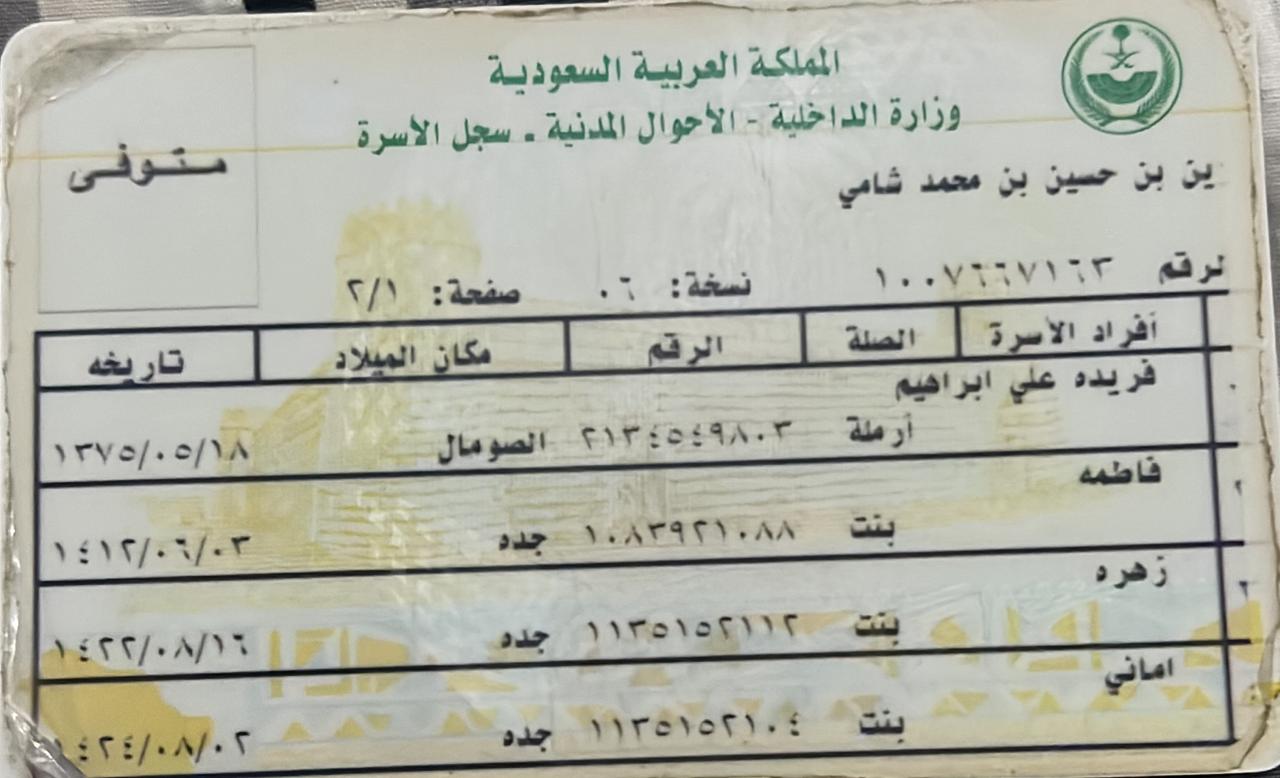 المملكة العربية السعودية
وزارة الداخلية - الأحوال المدنية - سجل الأسرة
متوفى
بن حسين بن محمد شامي
١٠٠٧٦٦٧١٦٣ نسخة: ٠٦ صفحة: ٢/١
أفراد الأسرة الصلة الرقم مكان الميلاد تاريخه
فريده علي ابراهيم
أرملة ٢١٣٤٥٤٩٨٠٣ الصومال ١٣٧٥/٠٥/١٨
٢ فاطمه
بنت ١٠٨٣٩٢١٠٨٨ جده ١٤١٢/٠٦/٠٣
زهره
بنت ١١٣٥١٥٢١١٢ جده ١٤٢٢/٠٨/١٦
اماني
بنت ١١٣٥١٥٢١٠٤ جده ١٤٢٤/٠٨/٠٢